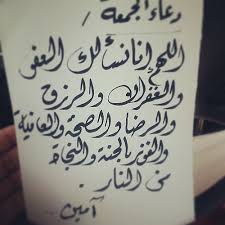 دعاء الجمعة /
اللهم إنا نسألك العفو
والغفران والرزق
والرضا والصحة والعافية
والفوز بالجنة والنجاة
من النار .
آمين ..